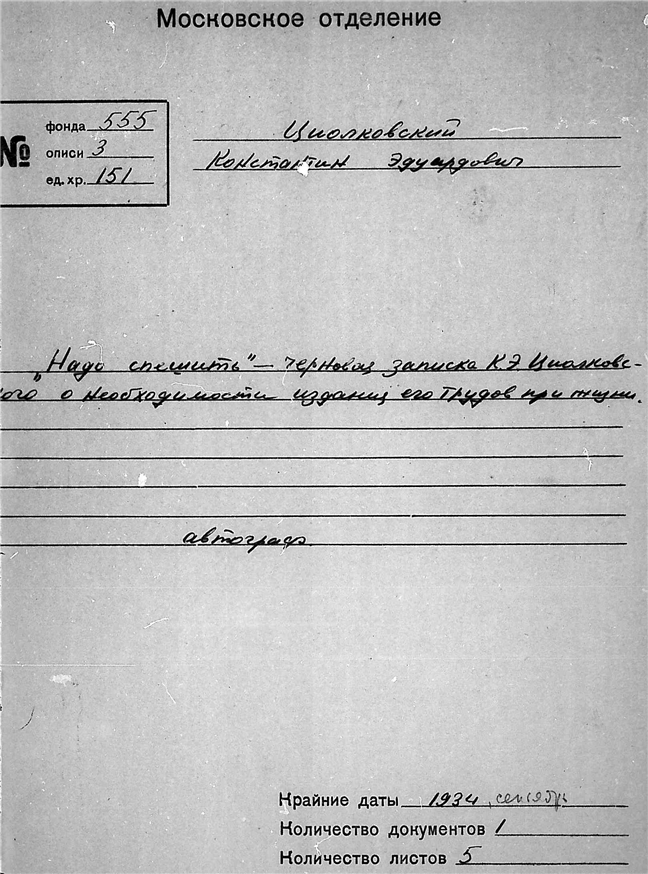 Московское отделение
№
фонда 555
описи 3
ед. хр. 151
Циолковский
Константин Эдуардович
„Надо спешить" — черновая записка К.Э. Циолковс-
кого о необходимости издания его трудов при жизни.
автограф
Крайние даты 1934, сентябрь
Количество документов 1
Количество листов 5